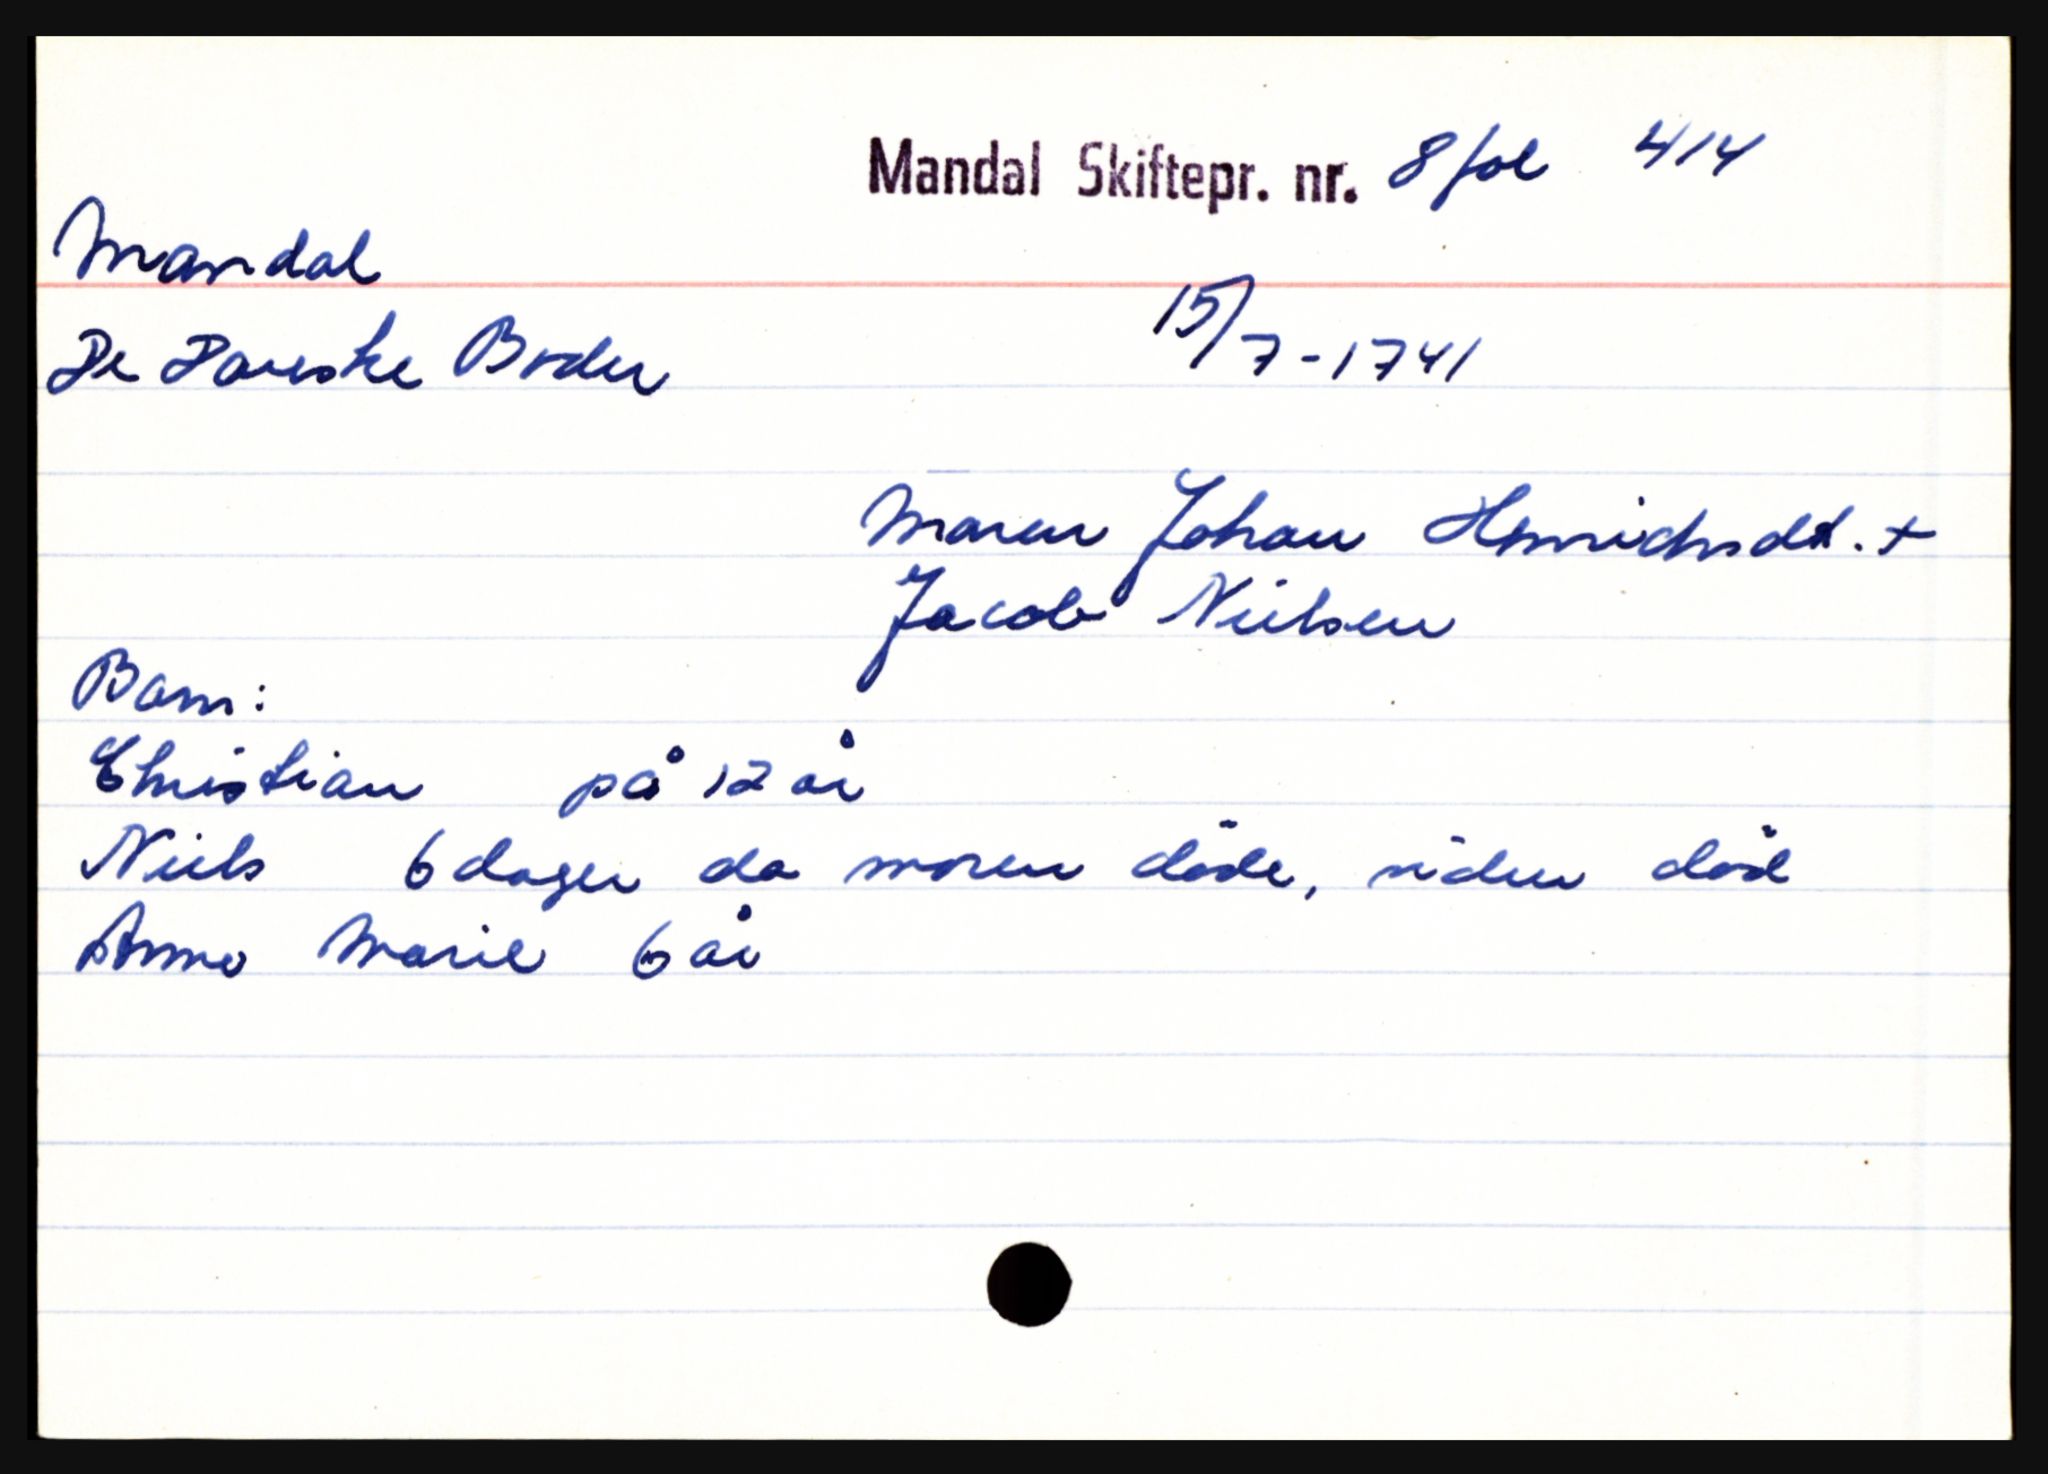 Mandal Skiftepr. nr. 8 fol 414
Mandal
De Danske Boder 15/7-1741
Maren Johan Henrichsdt. +
Jacob Nielsen
Barn:
Christian på 12 år
Niels 6 dager da moren döde, siden död
Anne Marie 6 år